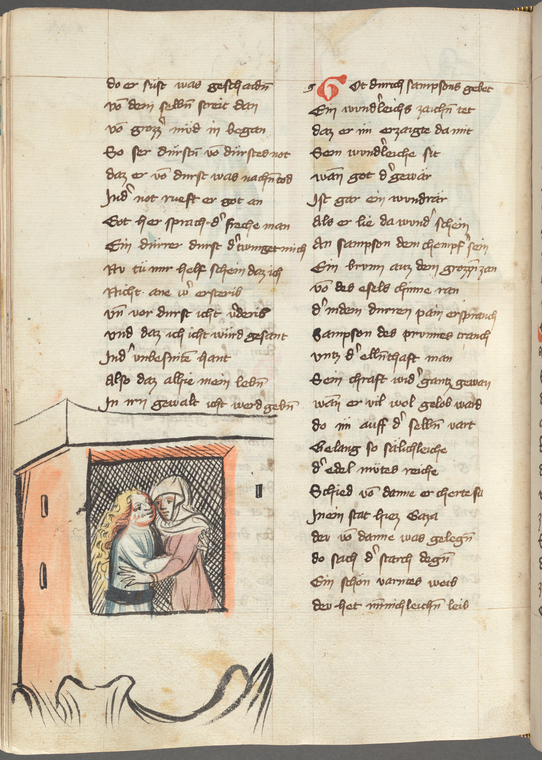 do er sust was geschaidn
vo dem selbn streit dan
vo grozz müd in began
So ser durstn vo durstes not
daz er vo durst was nachn tod
Ind not rueft er got an
Got her sprach d freche man
Ein dürrer durst d twinget mich
Nv tu mir helf schein daz ich
Nicht ane w ersterib
vn vor durst icht vderib
vnd daz ich icht wurd gesant
Ind vnbesnitn hant
Also daz allhie mein lebn
In irn gewalt icht werd gebn
Got durch sampsons gebet
Ein wundleichs zaichn tet
daz er im erzaigte da mit
Sein wundleiche sit
wan got d gewär
Ist gar ein wundrär
Als er lie da wund schein
An sampson dem chempf sein
Ein brunn auz dem grozzn zan
vo des esels chinne ran
d indem durren pain erspranch
Sampson des prunnes tranch
vntz d ellnthaft man
Sein chraft wid gantz gewan
wan er vil wol gelabt ward
do im auff d selbn vart
Gelang so sälichleiche
d edel mütes reiche
Schied vo danne er cherte sa
In ein stat hiez Gaza
der vo danne was gelegn
do sach d starch degn
Ein schon varnes weib
der het minnichleichn leib